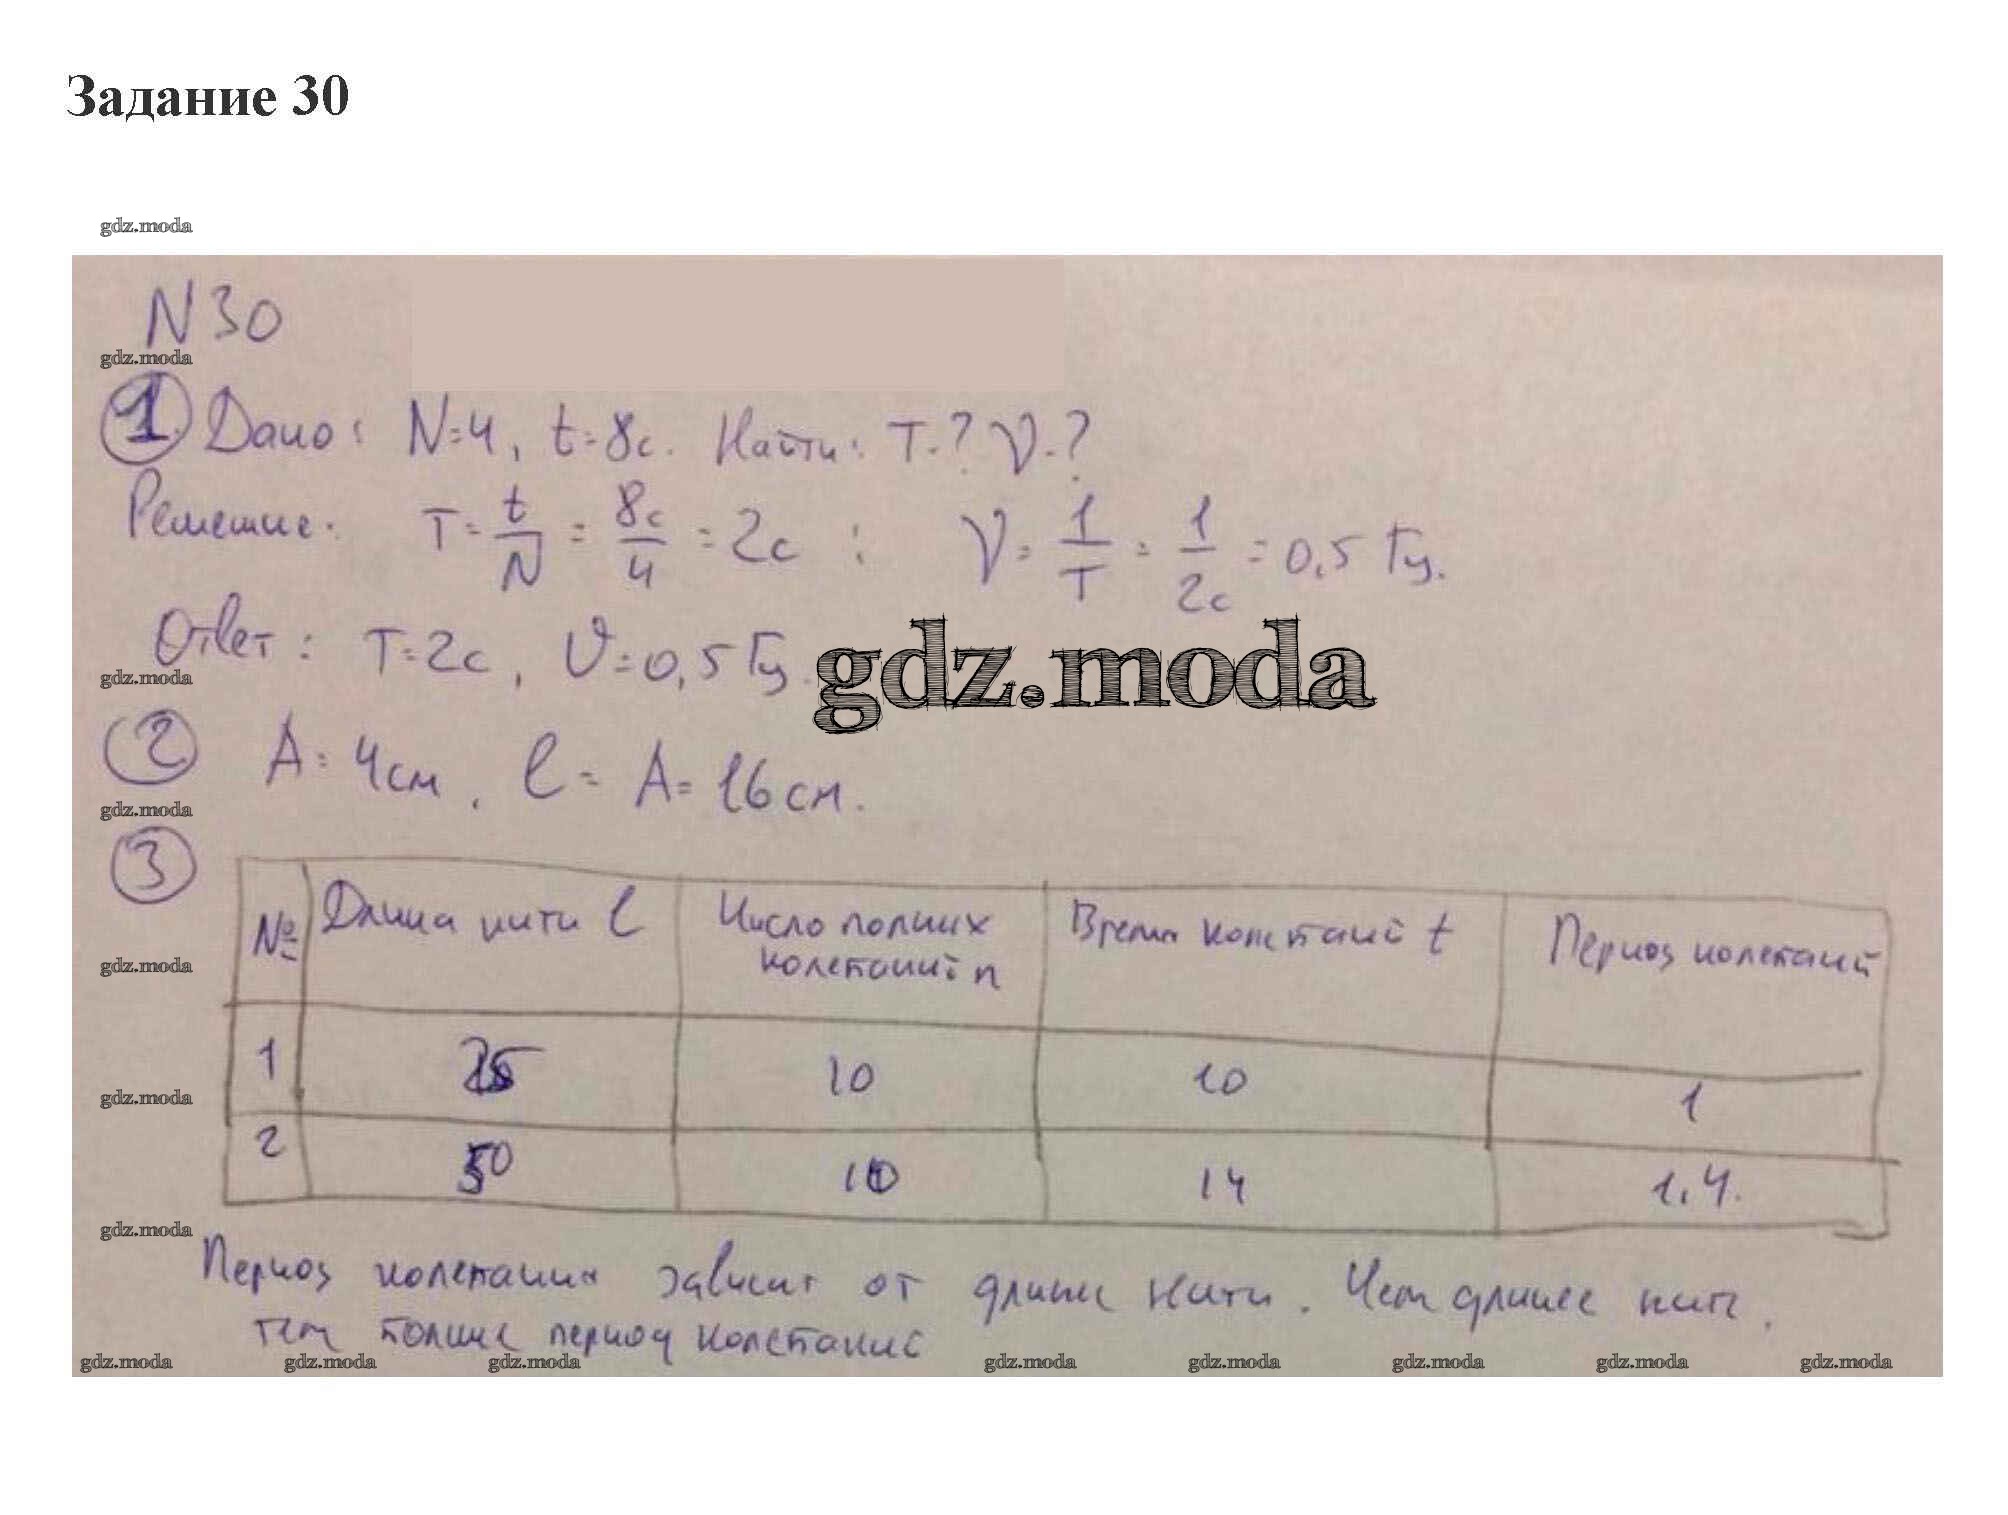 Задание 30
gdz.moda
N 30
gdz.moda
1. Дано: N=4, t=8с. Найти: T-? V-?
Решение: T=t/N=8с/4=2с ; V=1/T=1/2с=0,5 Гц.
Ответ: T=2с, V=0,5 Гц.
gdz.moda
gdz.moda
2 A=4см, l= A=16см.
gdz.moda
3
№ Длина нити l Число полных колебаний n Время колебаний t Период колебаний
gdz.moda
1 25 10 10 1
gdz.moda
2 50 10 14 1,4.
gdz.moda
Период колебания зависит от длины нити. Чем длиннее нить,
тем больше период колебание
gdz.moda gdz.moda gdz.moda gdz.moda gdz.moda gdz.moda gdz.moda gdz.moda